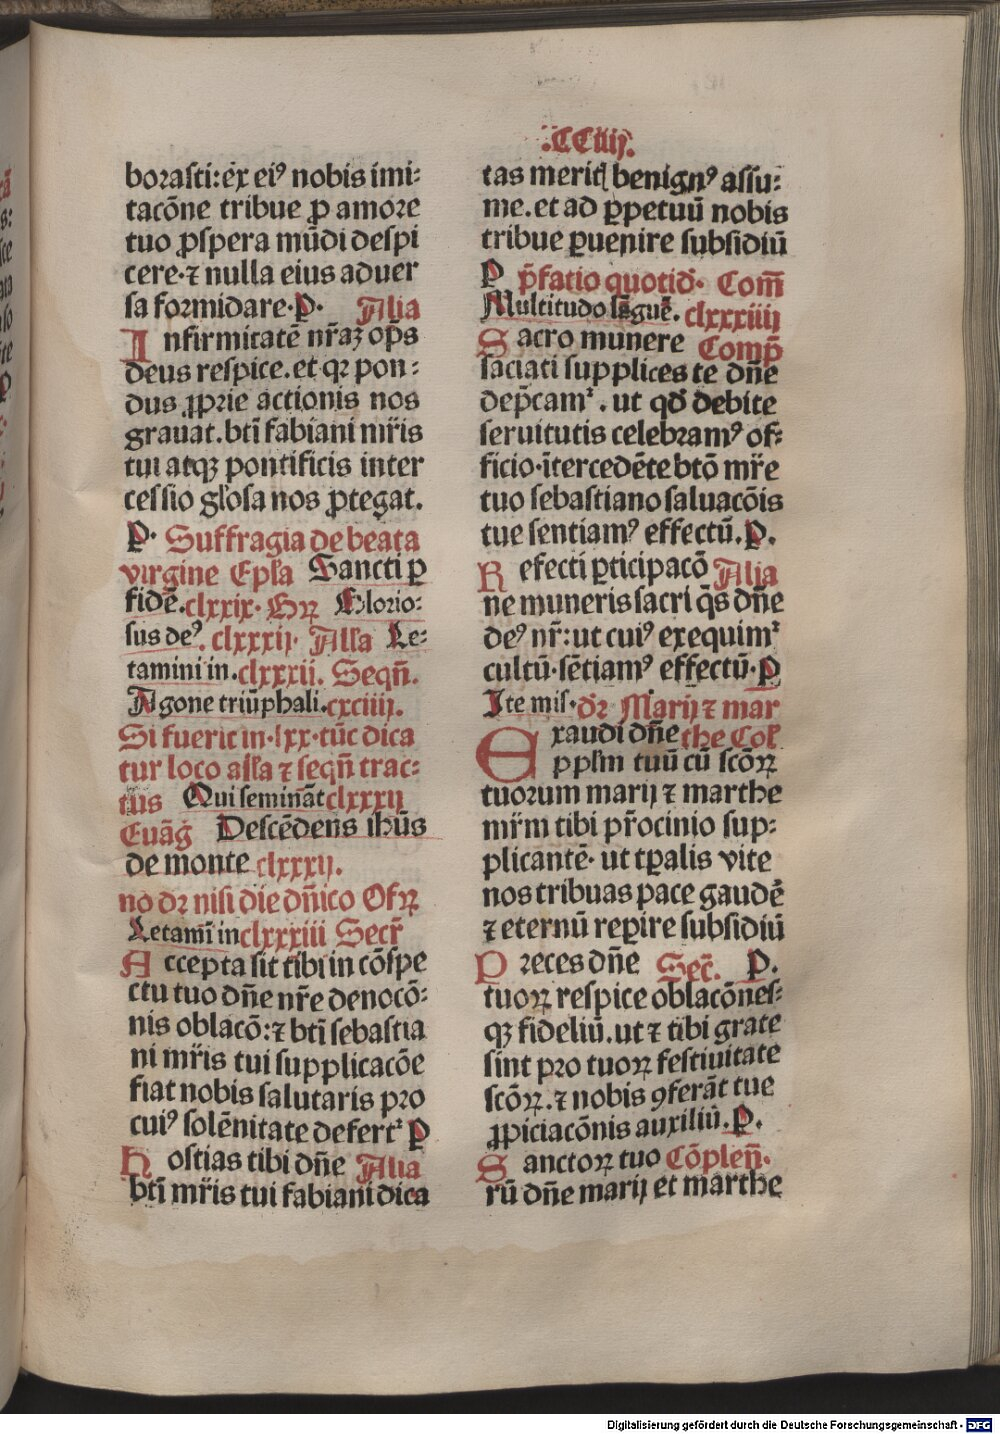 .CCiiij.
borasti: ex ei⁹ nobis imi-
tacōne tribue ꝑ amore
tuo ꝓspera mūdi despi
cere·⁊ nulla eius aduer
sa formidare·P· Alia
Infirmitatē nr̄aꝫ op̄s
deus respice.et qꝛ pon:
dus ꝓprie actionis nos
grauat.bti fabiani mr̄is
tui atqꝫ pontificis inter
cessio gl'osa nos ꝓtegat.
P· Suffragia de beata
virgine Epl'a Sancti ꝑ
fidē.clxxix· Grꝝ Glorio:
sus de⁹. clxxxij· Alla Le:
tamini in.clxxxii. Seqn̄.
Agone triūphali.cxciiij.
Si fuerit in·lxx·tūc dica
tur loco alla ⁊ seqn̄ trac:
tus Qui semināt clxxxij
Euāġ Descēdens ihūs
de monte clxxxij.
no dꝛ nisi die dn̄ico Ofꝝ
Letam̄i in clxxxiii Secr̄
Accepta sit tibi in cōspe
ctu tuo dn̄e nr̄e denocō:
nis oblacō:⁊ bti sebastia
ni mr̄is tui supplicacōe
fiat nobis salutaris pro
cui⁹ solēnitate defert᷑ P
Hostias tibi dn̄e Alia
bti mr̄is tui fabiani dica
tas meritꝭ benign⁹ assu:
me.et ad ꝑpetuū nobis
tribue ꝑuenire subsidiū
P p̄fatio quotid̄· Com̄
Multitudo lāguē. clxxxiiij
Sacro munere Comp̄
saciati supplices te dn̄e
dep̄cam᷑. ut qd̄ debite
seruitutis celebram⁹ of:
ficio·ītercedēte btō mr̄e
tuo sebastiano saluacōis
tue sentiam⁹ effectū.P.
Refecti ꝑticipacō Alia
ne muneris sacri q̄s dn̄e
de⁹ nr̄: ut cui⁹ exequim᷑
cultū·sētiam⁹ effectū·P
Ite mis·dꝛ Marij ⁊ mar
Exaudi dn̄e the Col'
p pl̄m tuū cū scōꝝ
tuorum marij ⁊ marthe
mr̄m tibi pr̄ocinio sup:
plicantē· ut tꝑalis vite
nos tribuas pace gaudē
⁊ eternū reꝑire subsidiū
Preces dn̄e Sec̄. P.
tuoꝝ respice oblacōnes:
qꝫ fideliū.ut ⁊ tibi grate
sint pro tuoꝝ festiuitate
scōꝝ.⁊ nobis ꝯferāt tue
ꝓpiciacōnis auxiliū.P.
Sanctoꝝ tuo Cōplen̄·
rū dn̄e marij et marthe
Digitalisierung gefördert durch die Deutsche Forschungsgemeinschaft - DFG